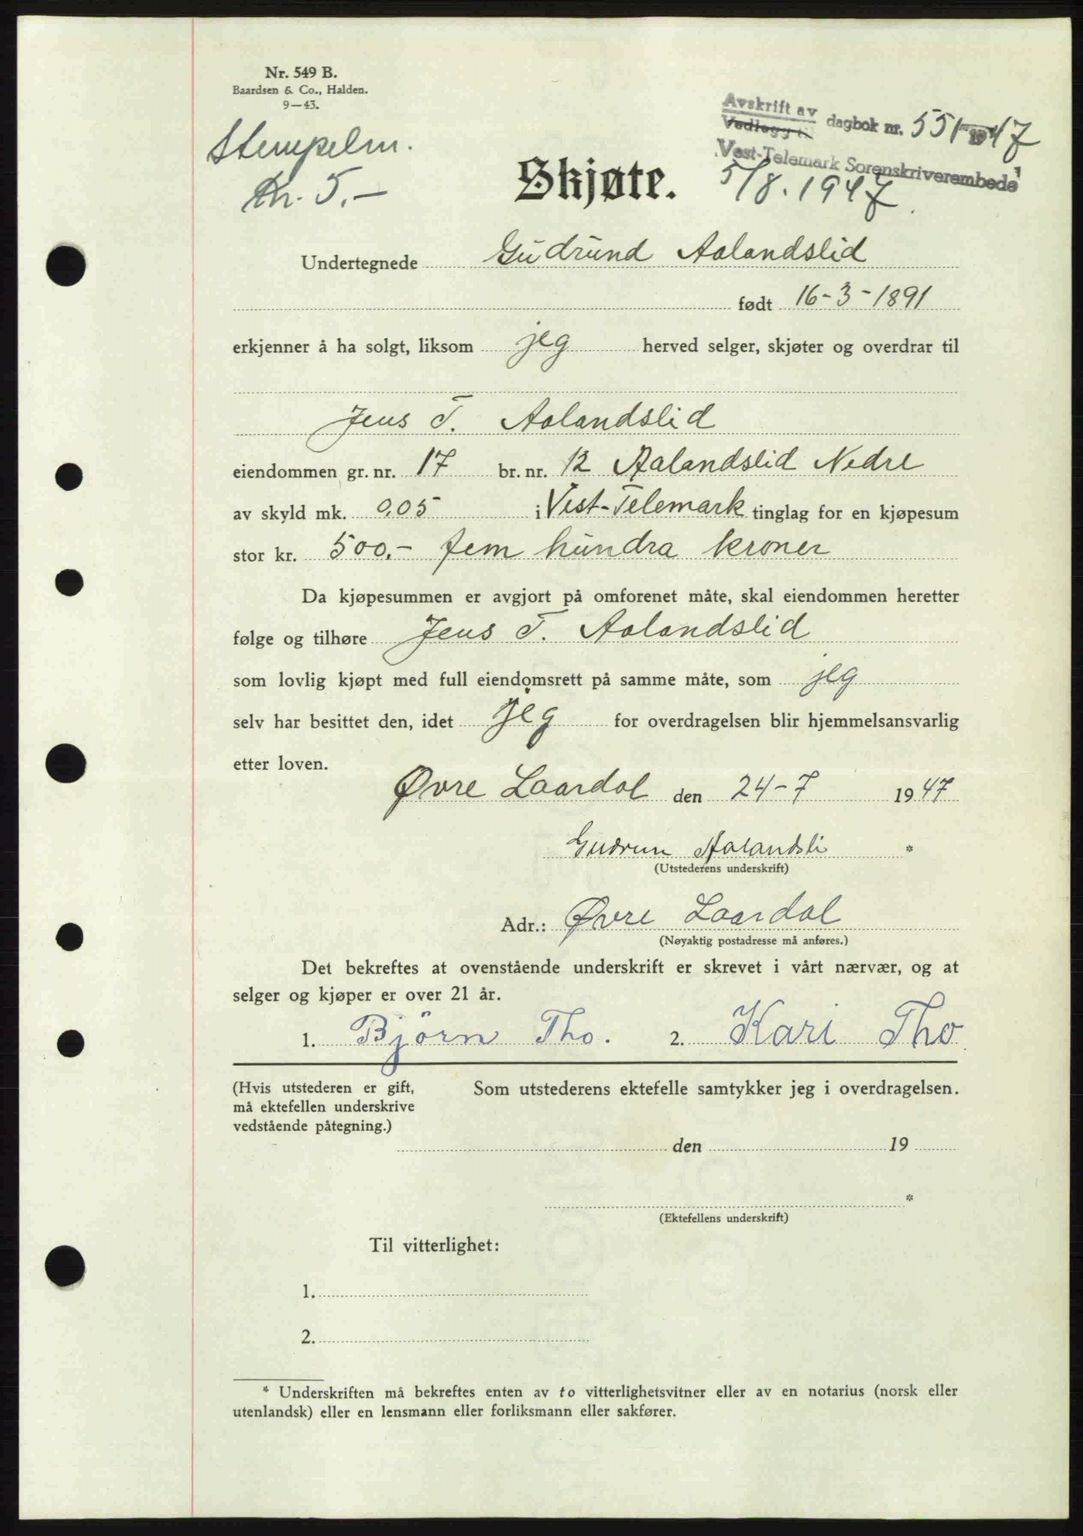 Nr. 549 B.
Baardsen & Co., Halden.
9—43.
Stempelm.
Kr. 5.-
Avskrift av
Vedlegg til
dagbok nr. 551 - 1947
Vest-Telemark Sorenskriverembede
5/8. 1947
Skjøte.
Undertegnede Gudrund Aalandslid
født 16-3-1891
erkjenner å ha solgt, liksom jeg herved selger, skjøter og overdrar til
Jens T. Aalandslid
eiendommen gr. nr. 17 br. nr. 12 Aalandslid Nedre
av skyld mk. 0,05 i Vest-Telemark tinglag for en kjøpesum
stor kr. 500.- fem hundra kroner
Da kjøpesummen er avgjort på omforenet måte, skal eiendommen heretter
følge og tilhøre Jens T. Aalandslid
som lovlig kjøpt med full eiendomsrett på samme måte, som jeg
selv har besittet den, idet jeg for overdragelsen blir hjemmelsansvarlig
etter loven.
Øvre Laardal den 24-7 1947
Gudrun Aalandsli *
(Utstederens underskrift)
Adr.: Øvre Laardal
(Nøyaktig postadresse må anføres.)
Det bekreftes at ovenstående underskrift er skrevet i vårt nærvær, og at
selger og kjøper er over 21 år.
1. Björn Tho. 2. Kari Tho
(Hvis utstederen er gift,
må ektefellen underskrive
vedstående påtegning.)
Som utstederens ektefelle samtykker jeg i overdragelsen.
den 19
*
(Ektefellens underskrift)
Til vitterlighet:
1.
2.
* Underskriften må bekreftes enten av to vitterlighetsvitner eller av en notarius (norsk eller
utenlandsk) eller en lensmann eller forliksmann eller sakfører.